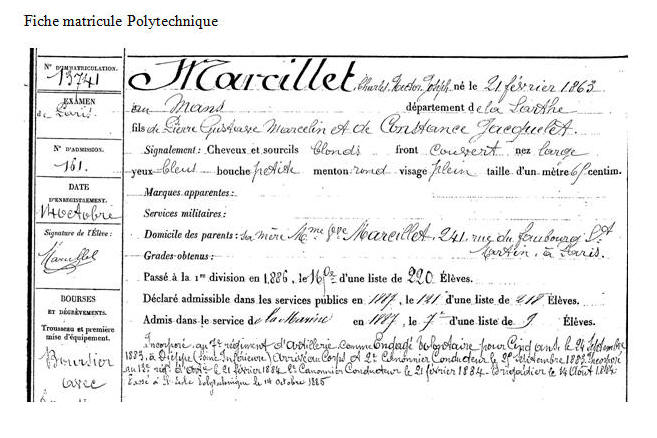 Fiche matricule Polytechnique
N° D'IMMATRICULATION.
13741
EXAMEN
de Paris.
N° D'ADMISSION.
161.
DATE
D'ENREGISTREMENT.
14 octobre
Signature de l'Élève :
Marcillet
BOURSES
ET DÉGRÈVEMENTS.
Trousseau et première
mise d'équipement.
Boursier
avec
Marcillet, Charles Hector Joseph, né le 21 février 1863
au Mans département de la Sarthe
fils de Pierre Gustave Marcelin et de Constance Jacquelet.
Signalement : Cheveux et sourcils blonds front couvert nez large
yeux bleus bouche petite menton rond visage plein taille d'un mètre 65 centim.
Marques apparentes :
Services militaires :
Domicile des parents : sa mère Mme Vve Marcillet, 241, rue du faubourg St
Martin, à Paris.
Grades obtenus :
Passé à la 1re division en 1886, le 169e d'une liste de 220 Élèves.
Déclaré admissible dans les services publics en 1887, le 121 d'une liste de 218 Élèves.
Admis dans le service de la Marine en 1887, le 7e d'une liste de 9 Élèves.
Incorporé au 7e régiment d'Artillerie comme Engagé volontaire pour Cinq ans, le 24 septembre
1883, à Dieppe (Seine Inférieure) Arrivé au Corps et 2e Canonnier Conducteur le 29 septembre 1883. Incorporé
au 12e rég. d'Artie le 21 février 1884 2e Canonnier Conducteur le 21 février 1884 - Brigadier le 14 Août 1884.
Entré à l'École Polytechnique le 14 octobre 1885